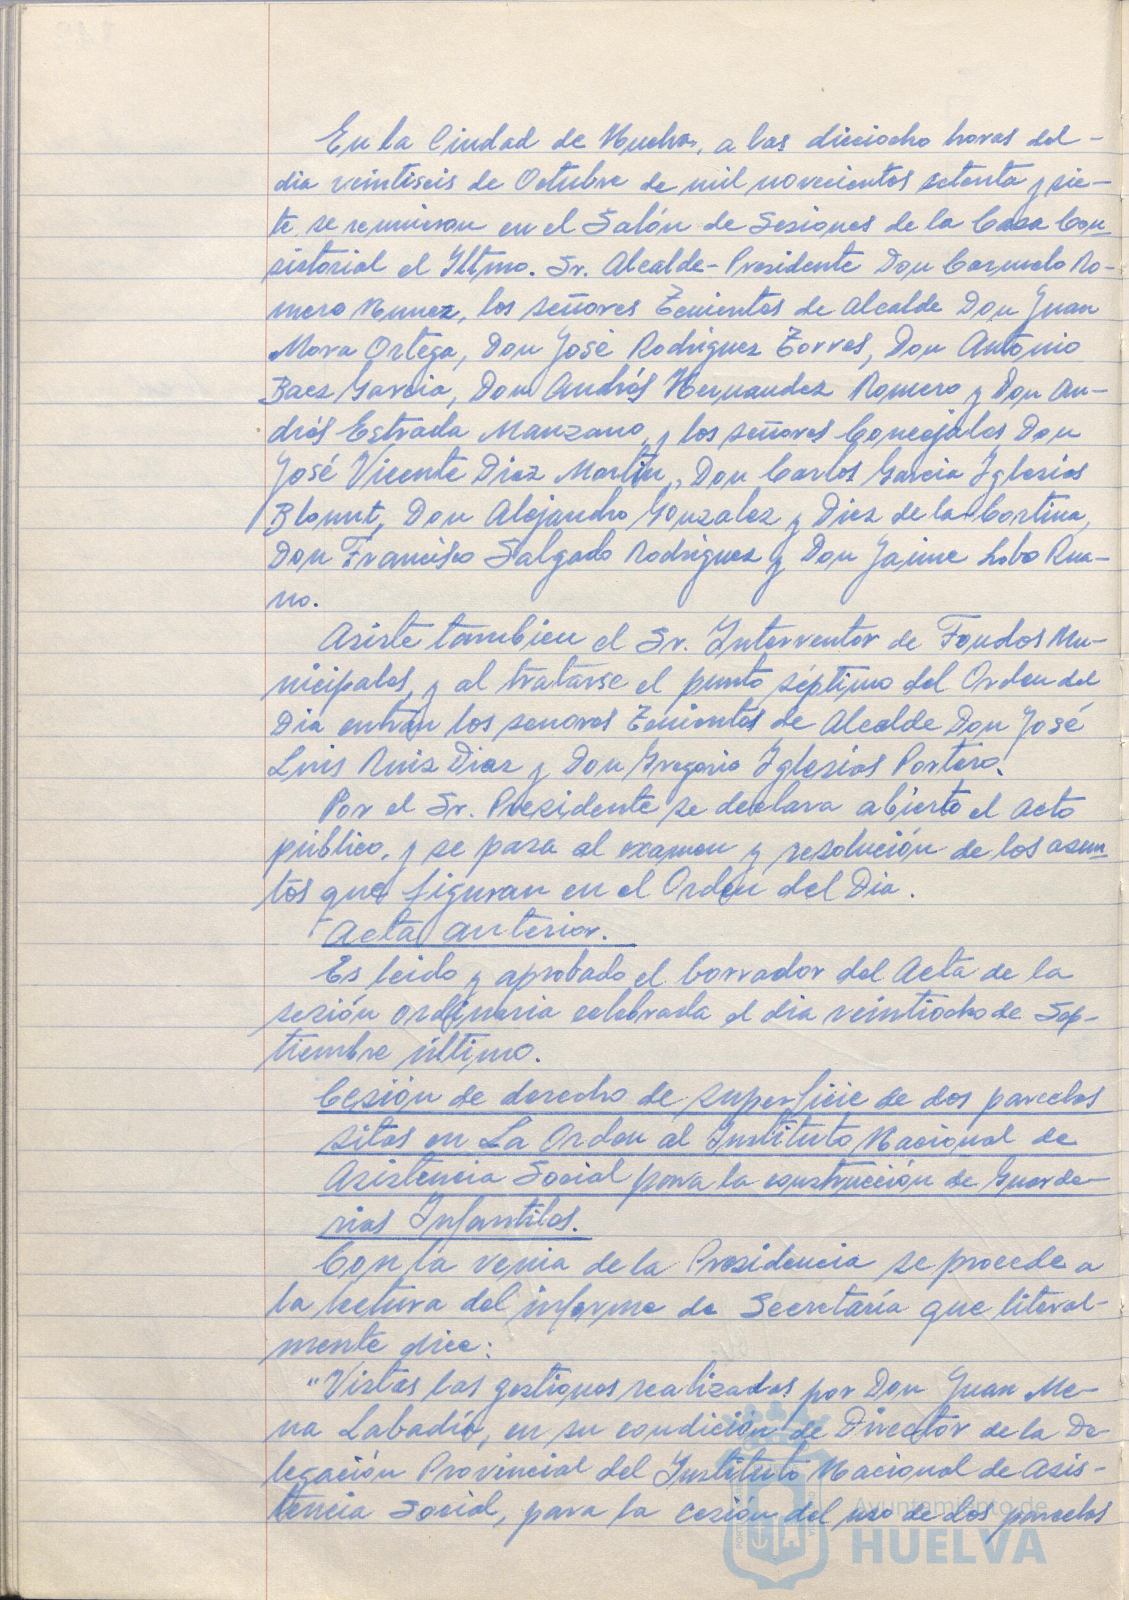 En la Ciudad de Huelva, a las dieciocho horas del
dia veintiseis de Octubre de mil novecientos setenta y sie-
te, se reunieron en el Salón de Sesiones de la Casa Con
sistorial el Iltmo. Sr. Alcalde-Presidente Don Carmelo Ro-
mero Nuñez, los señores Tenientes de Alcalde Don Juan
Mora Ortega, Don José Rodriguez Torres, Don Antonio
Baez Garcia, Don Andrés Hernandez Romero y Don An-
drés Estrada Manzano, y los señores Concejales Don
José Vicente Diaz Martin, Don Carlos Garcia Iglesias
Blount, Don Alejandro Gonzalez y Diez de la Cortina,
Don Francisco Salgado Rodriguez y Don Jaime Lobo Rua-
no.
Asiste tambien el Sr. Interventor de Fondos Mu-
nicipales, y al tratarse el punto séptimo del Orden del
Dia entran los señores Tenientes de Alcalde Don José
Luis Ruiz Diaz y Don Gregorio Iglesias Portero.
Por el Sr. Presidente se declara abierto el acto
público, y se pasa al examen y resolución de los asun
tos que figuran en el Orden del Dia.
Acta anterior.
Es leido y aprobado el borrador del Acta de la
sesión ordinaria celebrada el dia veintiocho de Sep-
tiembre último.
Cesión de derecho de superficie de dos parcelas
sitas en La Orden al Instituto Nacional de
Asistencia Social para la construcción de Guarde-
rias Infantiles.
Con la venia de la Presidencia se procede a
la lectura del informe de Secretaría que literal-
mente dice:
"Vistas las gestiones realizadas por Don Juan Me-
na Labadía, en su condición de Director de la De-
legación Provincial del Instituto Nacional de Asis-
tencia Social, para la cesión del uso de dos parcelas
Ayuntamiento de
HUELVA